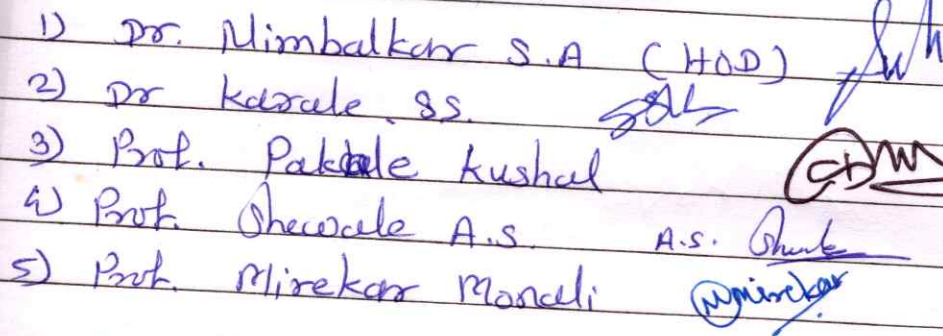 1) Dr. Nimbalkar S.A (HOD)
2) Dr Karale SS.
3) Prof. Pakhale Kushal
4) Prof. Shewale A.S. A.S.
5) Prof. Mirekar Monali Mirekar